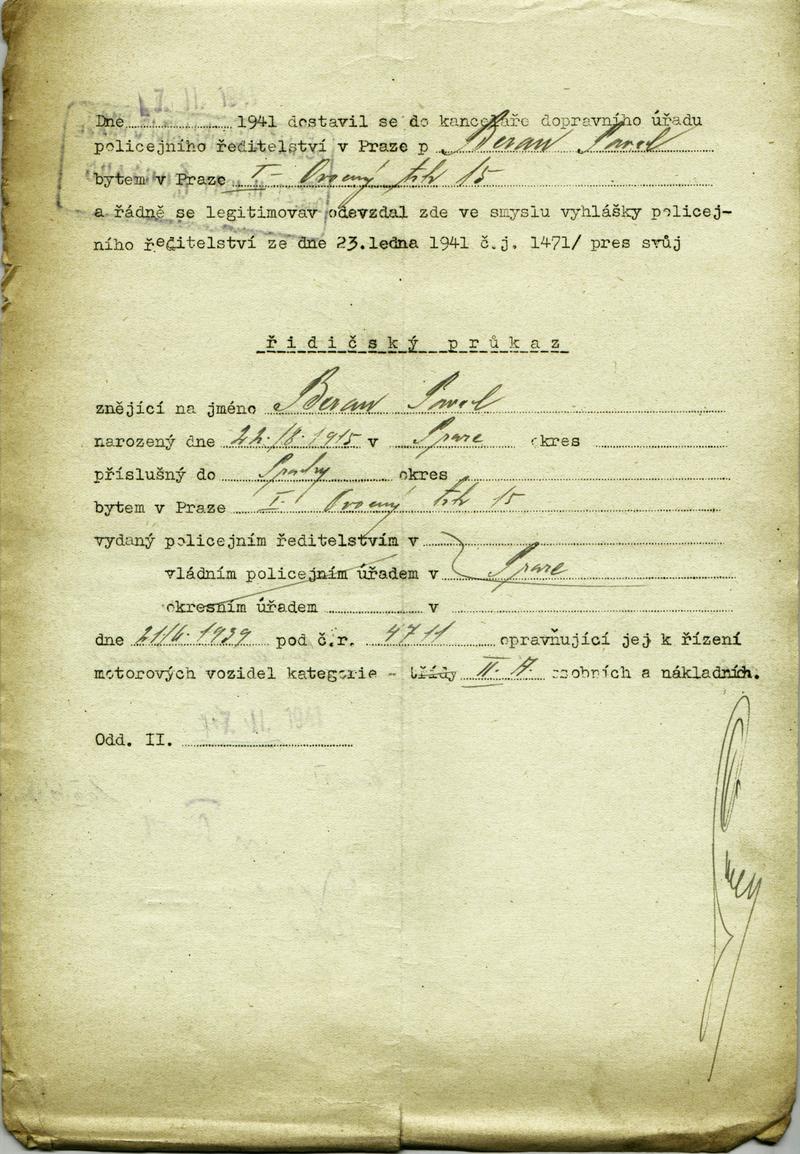 Dne .................... 1941 dostavil se do kanceláře dopravního úřadu
policejního ředitelství v Praze p Beran Pavel
bytem v Praze I - Ovocný trh 15
a řádně se legitimovav odevzdal zde ve smyslu vyhlášky policej-
ního ředitelství ze dne 23.ledna 1941 č.j. 1471/ pres svůj
řidičský průkaz
znějící na jméno Beran Pavel
narozený dne 22./8.1915 v Praze okres
příslušný do Prahy okres
bytem v Praze I. Ovocný trh 15
vydaný policejním ředitelstvím v
vládním policejním úřadem v Praze
okresním úřadem .................... v
dne 21/6.1939 pod č.r. 4711 opravňující jej k řízení
motorových vozidel kategorie - třídy II. A osobních a nákladních.
Odd. II.